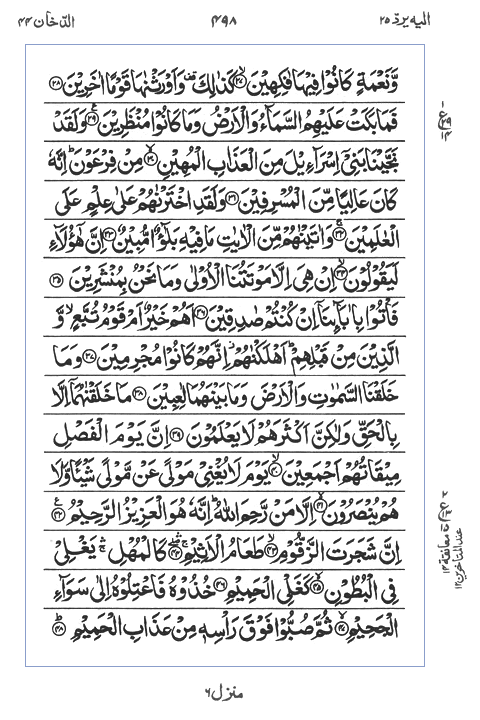 الیه یرد ۲۵
۴۹۸
الدخان ۴۴
وَّنَعْمَةٍ كَانُوْا فِیْهَا فٰكِهِیْنَ ۙ﴿۲۷﴾ كَذٰلِكَ ۟ وَاَوْرَثْنٰهَا قَوْمًا اٰخَرِیْنَ ﴿۲۸﴾
فَمَا بَكَتْ عَلَیْهِمُ السَّمَآءُ وَالْاَرْضُ وَمَا كَانُوْا مُنْظَرِیْنَ ﴿۲۹﴾ وَلَقَدْ
نَجَّیْنَا بَنِیْۤ اِسْرَآءِیْلَ مِنَ الْعَذَابِ الْمُهِیْنِ ۙ﴿۳۰﴾ مِنْ فِرْعَوْنَ ؕ اِنَّهٗ
كَانَ عَالِیًا مِّنَ الْمُسْرِفِیْنَ ﴿۳۱﴾ وَلَقَدِ اخْتَرْنٰهُمْ عَلٰی عِلْمٍ عَلَی
الْعٰلَمِیْنَ ۚ﴿۳۲﴾ وَاٰتَیْنٰهُمْ مِّنَ الْاٰیٰتِ مَا فِیْهِ بَلٰٓؤٌا مُّبِیْنٌ ﴿۳۳﴾ اِنَّ هٰۤؤُلَآءِ
لَیَقُوْلُوْنَ ۙ﴿۳۴﴾ اِنْ هِیَ اِلَّا مَوْتَتُنَا الْاُوْلٰی وَمَا نَحْنُ بِمُنْشَرِیْنَ ﴿۳۵﴾
فَاْتُوْا بِاٰبَآىِٕنَاۤ اِنْ كُنْتُمْ صٰدِقِیْنَ ﴿۳۶﴾ اَهُمْ خَیْرٌ اَمْ قَوْمُ تُبَّعٍ ۙ وَّ
الَّذِیْنَ مِنْ قَبْلِهِمْ ؕ اَهْلَكْنٰهُمْ ؗ اِنَّهُمْ كَانُوْا مُجْرِمِیْنَ ﴿۳۷﴾ وَمَا
خَلَقْنَا السَّمٰوٰتِ وَالْاَرْضَ وَمَا بَیْنَهُمَا لٰعِبِیْنَ ﴿۳۸﴾ مَا خَلَقْنٰهُمَاۤ اِلَّا
بِالْحَقِّ وَلٰكِنَّ اَكْثَرَهُمْ لَا یَعْلَمُوْنَ ﴿۳۹﴾ اِنَّ یَوْمَ الْفَصْلِ
مِیْقَاتُهُمْ اَجْمَعِیْنَ ۙ﴿۴۰﴾ یَوْمَ لَا یُغْنِیْ مَوْلًی عَنْ مَّوْلًی شَیْـًٔا وَّلَا
هُمْ یُنْصَرُوْنَ ۙ﴿۴۱﴾ اِلَّا مَنْ رَّحِمَ اللّٰهُ ؕ اِنَّهٗ هُوَ الْعَزِیْزُ الرَّحِیْمُ ﴿۴۲﴾
اِنَّ شَجَرَتَ الزَّقُّوْمِ ۙ﴿۴۳﴾ طَعَامُ الْاَثِیْمِ ﴿۴۴﴾ كَالْمُهْلِ ۛۚ یَغْلِیْ
فِی الْبُطُوْنِ ۙ﴿۴۵﴾ كَغَلْیِ الْحَمِیْمِ ﴿۴۶﴾ خُذُوْهُ فَاعْتِلُوْهُ اِلٰی سَوَآءِ
الْجَحِیْمِ ۖ﴿۴۷﴾ ثُمَّ صُبُّوْا فَوْقَ رَاْسِهٖ مِنْ عَذَابِ الْحَمِیْمِ ؕ﴿۴۸﴾
معانقة ۱۴
عند المتاخرین ۱۲
منزل ۶